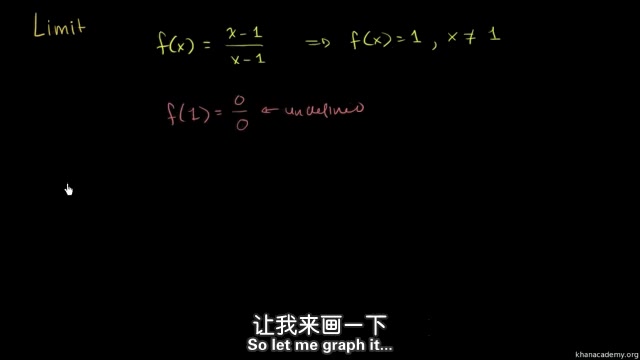 Limit
f(x) = x-1 / x-1 ⇒ f(x) = 1 , x ≠ 1
f(1) = 0 / 0 ← undefined
让我来画一下
So let me graph it...
khanacademy.org